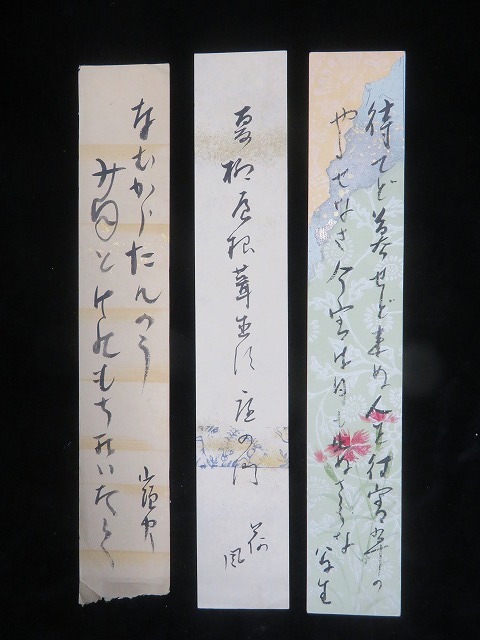 待てど暮せど来ぬ人を待宵草の
やるせなさ今宵は月も出ぬさうな
夢生
夏柳屋根葺 庭の門
荷風
なむからたんのう
みほとけのもちひいたゞく
山頭火